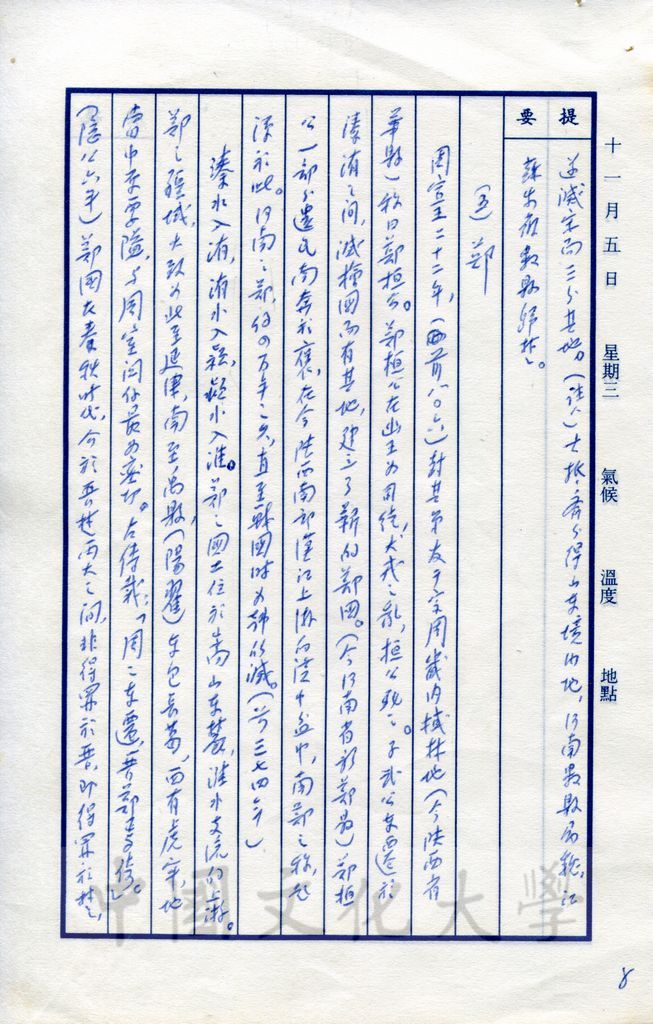 十一月五日 星期三 氣候 溫度 地點
提要
遂滅宋而三分其地。齊分得山東境內地，河南數縣歸魏，江
蘇方面數縣歸楚。
(五)鄭
周宣王二十二年，(西前八〇六)封其弟友于宗周畿內棫林地(今陝西省
華縣)稱曰鄭桓公。鄭桓公在幽王為司徒，犬戎之亂，桓公死之。子武公東遷於
溱洧之間，滅檜國而有其地，建立了新的鄭國。(今河南省新鄭縣)鄭桓
公一部分遺民南奔於褒，在今陝西南部漢江上游的漢中盆中，南鄭之稱，起
源於此。河南之鄭，直至戰國時為韓所滅。(前三七四年)
溱水入洧，洧水入潁，潁水入淮。鄭之國土位於嵩山東麓，淮水支流的上游。
鄭之疆域，大致為北至延津，南至禹縣(陽翟)東包長葛，西有虎牢地
當中原要隘，與周室關係最為密切。左傳載：「周之東遷，晉鄭焉依。」
(隱公六年)鄭國在春秋時代，介於晉楚兩大之間，非得罪於晉，即得罪於楚，
8
中國文化大學